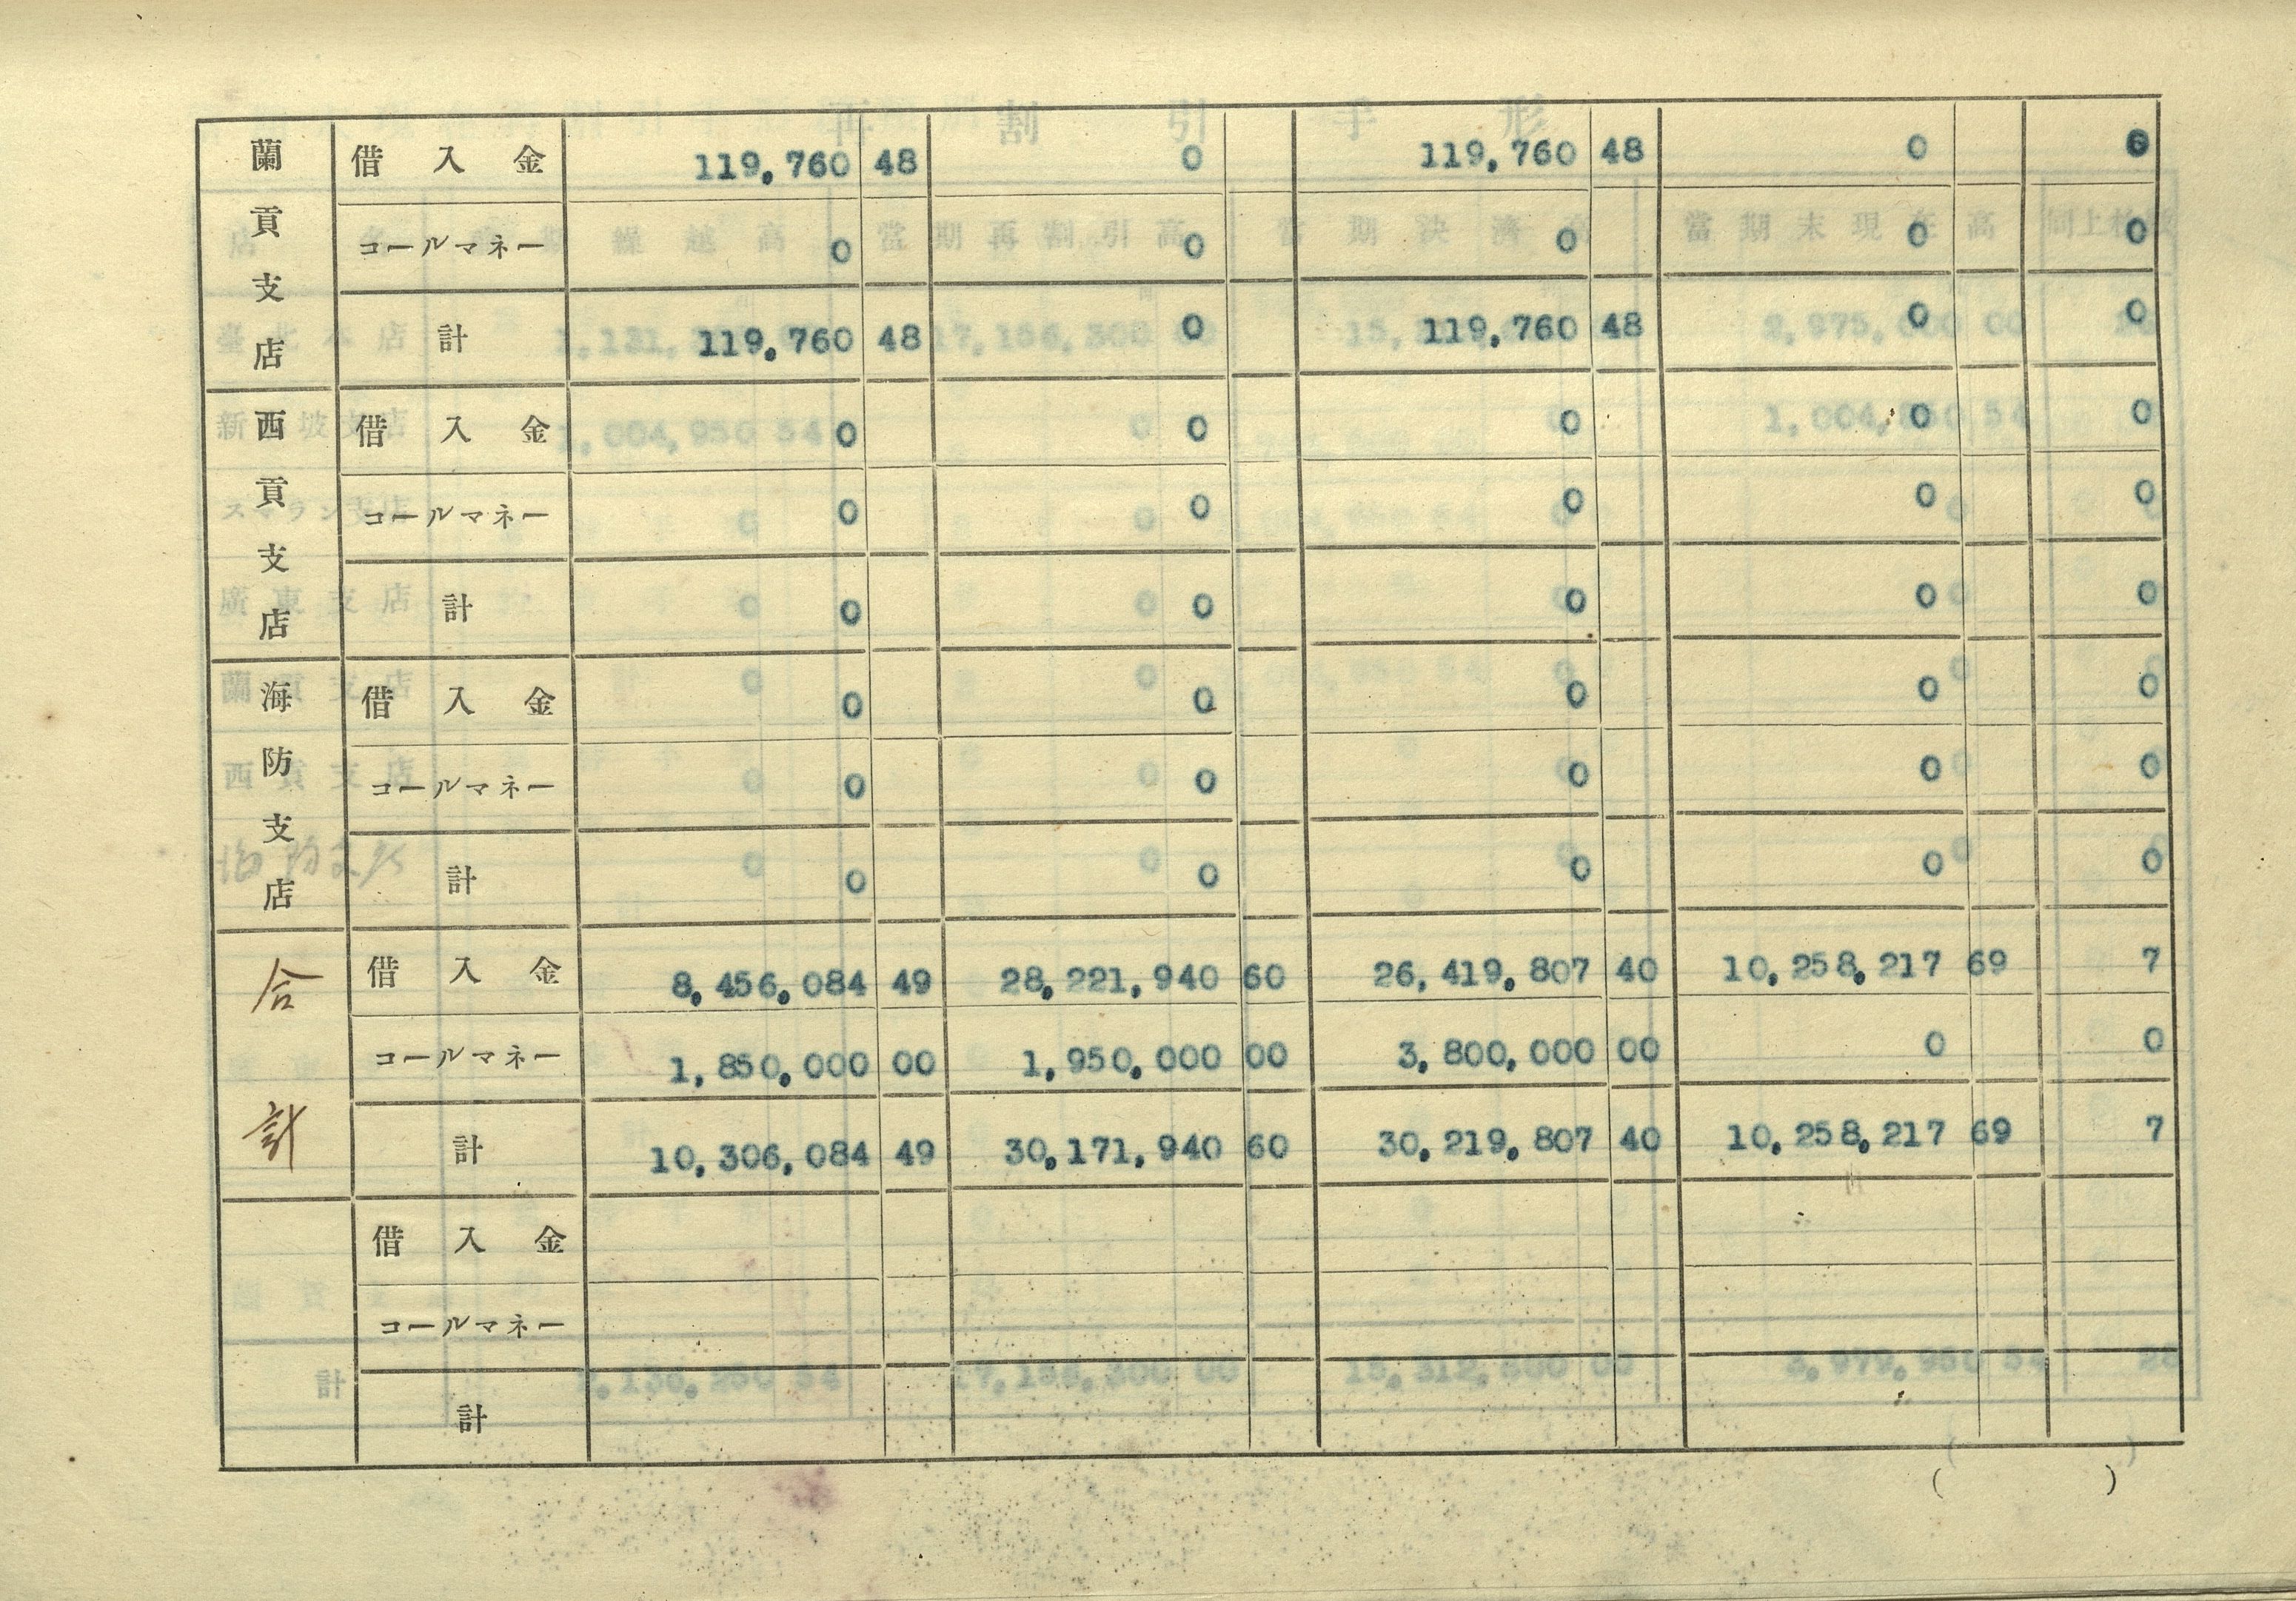 蘭貢支店 借入金 119,760 48 0 119,760 48 0 0
コールマネー 0 0 0 0 0
計 119,760 48 0 119,760 48 0 0
西貢支店 借入金 0 0 0 0 0
コールマネー 0 0 0 0 0
計 0 0 0 0 0
海防支店 借入金 0 0 0 0 0
コールマネー 0 0 0 0 0
計 0 0 0 0 0
合計 借入金 8,456,084 49 28,221,940 60 26,419,807 40 10,258,217 69 7
コールマネー 1,850,000 00 1,950,000 00 3,800,000 00 0 0
計 10,306,084 49 30,171,940 60 30,219,807 40 10,258,217 69 7
借入金
コールマネー
計
( )